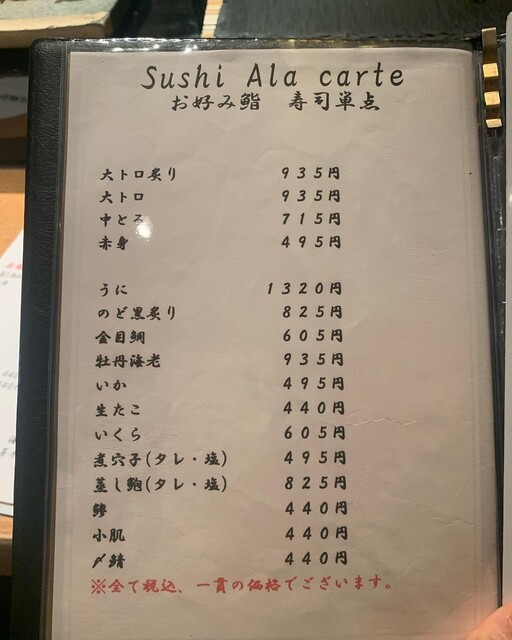 Sushi Ala carte
お好み鮨　寿司単点
大トロ炙り 935円
大トロ 935円
中とろ 715円
赤身 495円
うに 1320円
のど黒炙り 825円
金目鯛 605円
牡丹海老 935円
いか 495円
生たこ 440円
いくら 605円
煮穴子(タレ・塩) 495円
蒸し鮑(タレ・塩) 825円
鯵 440円
小肌 440円
〆鯖 440円
※全て税込、一貫の価格でございます。